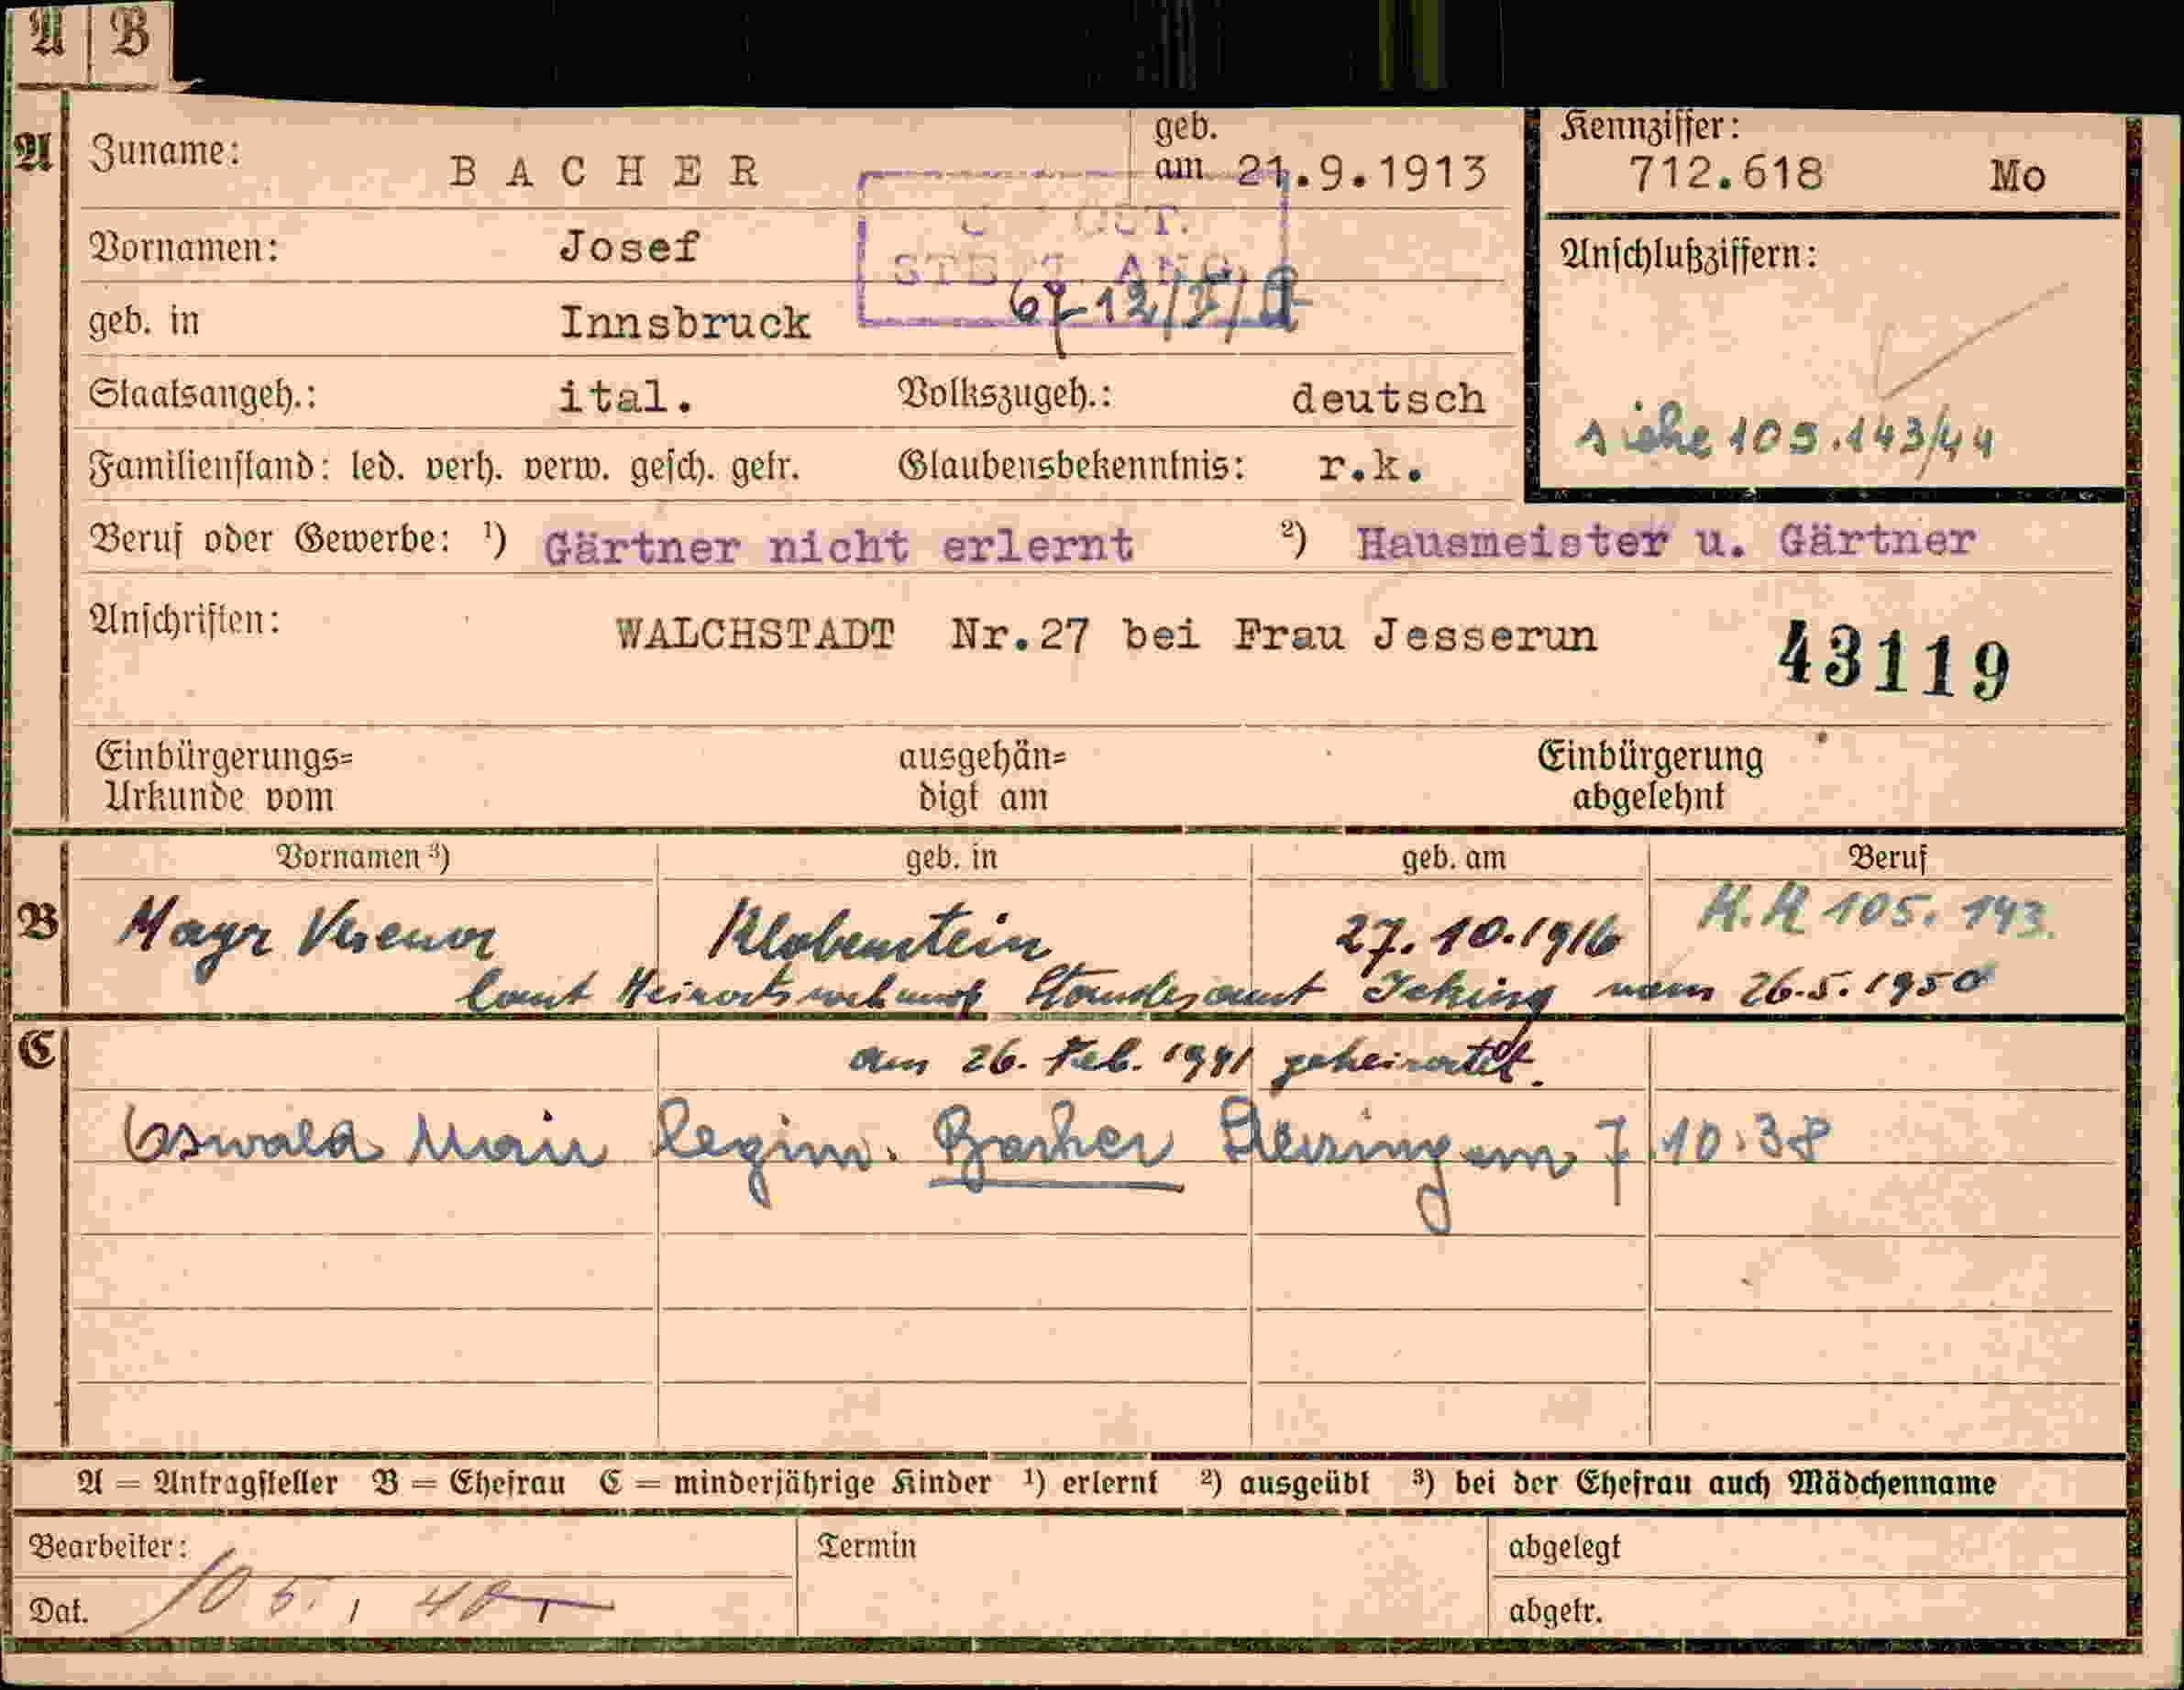 A B
A Zuname: BACHER geb. am 21.9.1913 Kennziffer: 712.618 Mo
Vornamen: Josef
Anschlußziffern:
geb. in Innsbruck
Staatsangeh.: ital. Volkszugeh.: deutsch
siehe 105.143/44
Familienstand: led. verh. verw. gesch. getr. Glaubensbekenntnis: r.k.
Beruf oder Gewerbe: ¹) Gärtner nicht erlernt ²) Hausmeister u. Gärtner
Anschriften: WALCHSTADT Nr.27 bei Frau Jesserun 43119
Einbürgerungs= ausgehän= Einbürgerung
Urkunde vom digt am abgelehnt
Vornamen ³) geb. in geb. am Beruf
B Mayr Verena Klobenstein 27.10.1916 K.K 105.143.
laut Heiratsurkunde Standesamt Icking vom 26.5.1950
C am 26. Feb. 1941 geheiratet.
Oswald Mair legim. Bacher 7.10.38
A = Antragsteller B = Ehefrau C = minderjährige Kinder ¹) erlernt ²) ausgeübt ³) bei der Ehefrau auch Mädchenname
Bearbeiter: Termin abgelegt
Dat. abgetr.